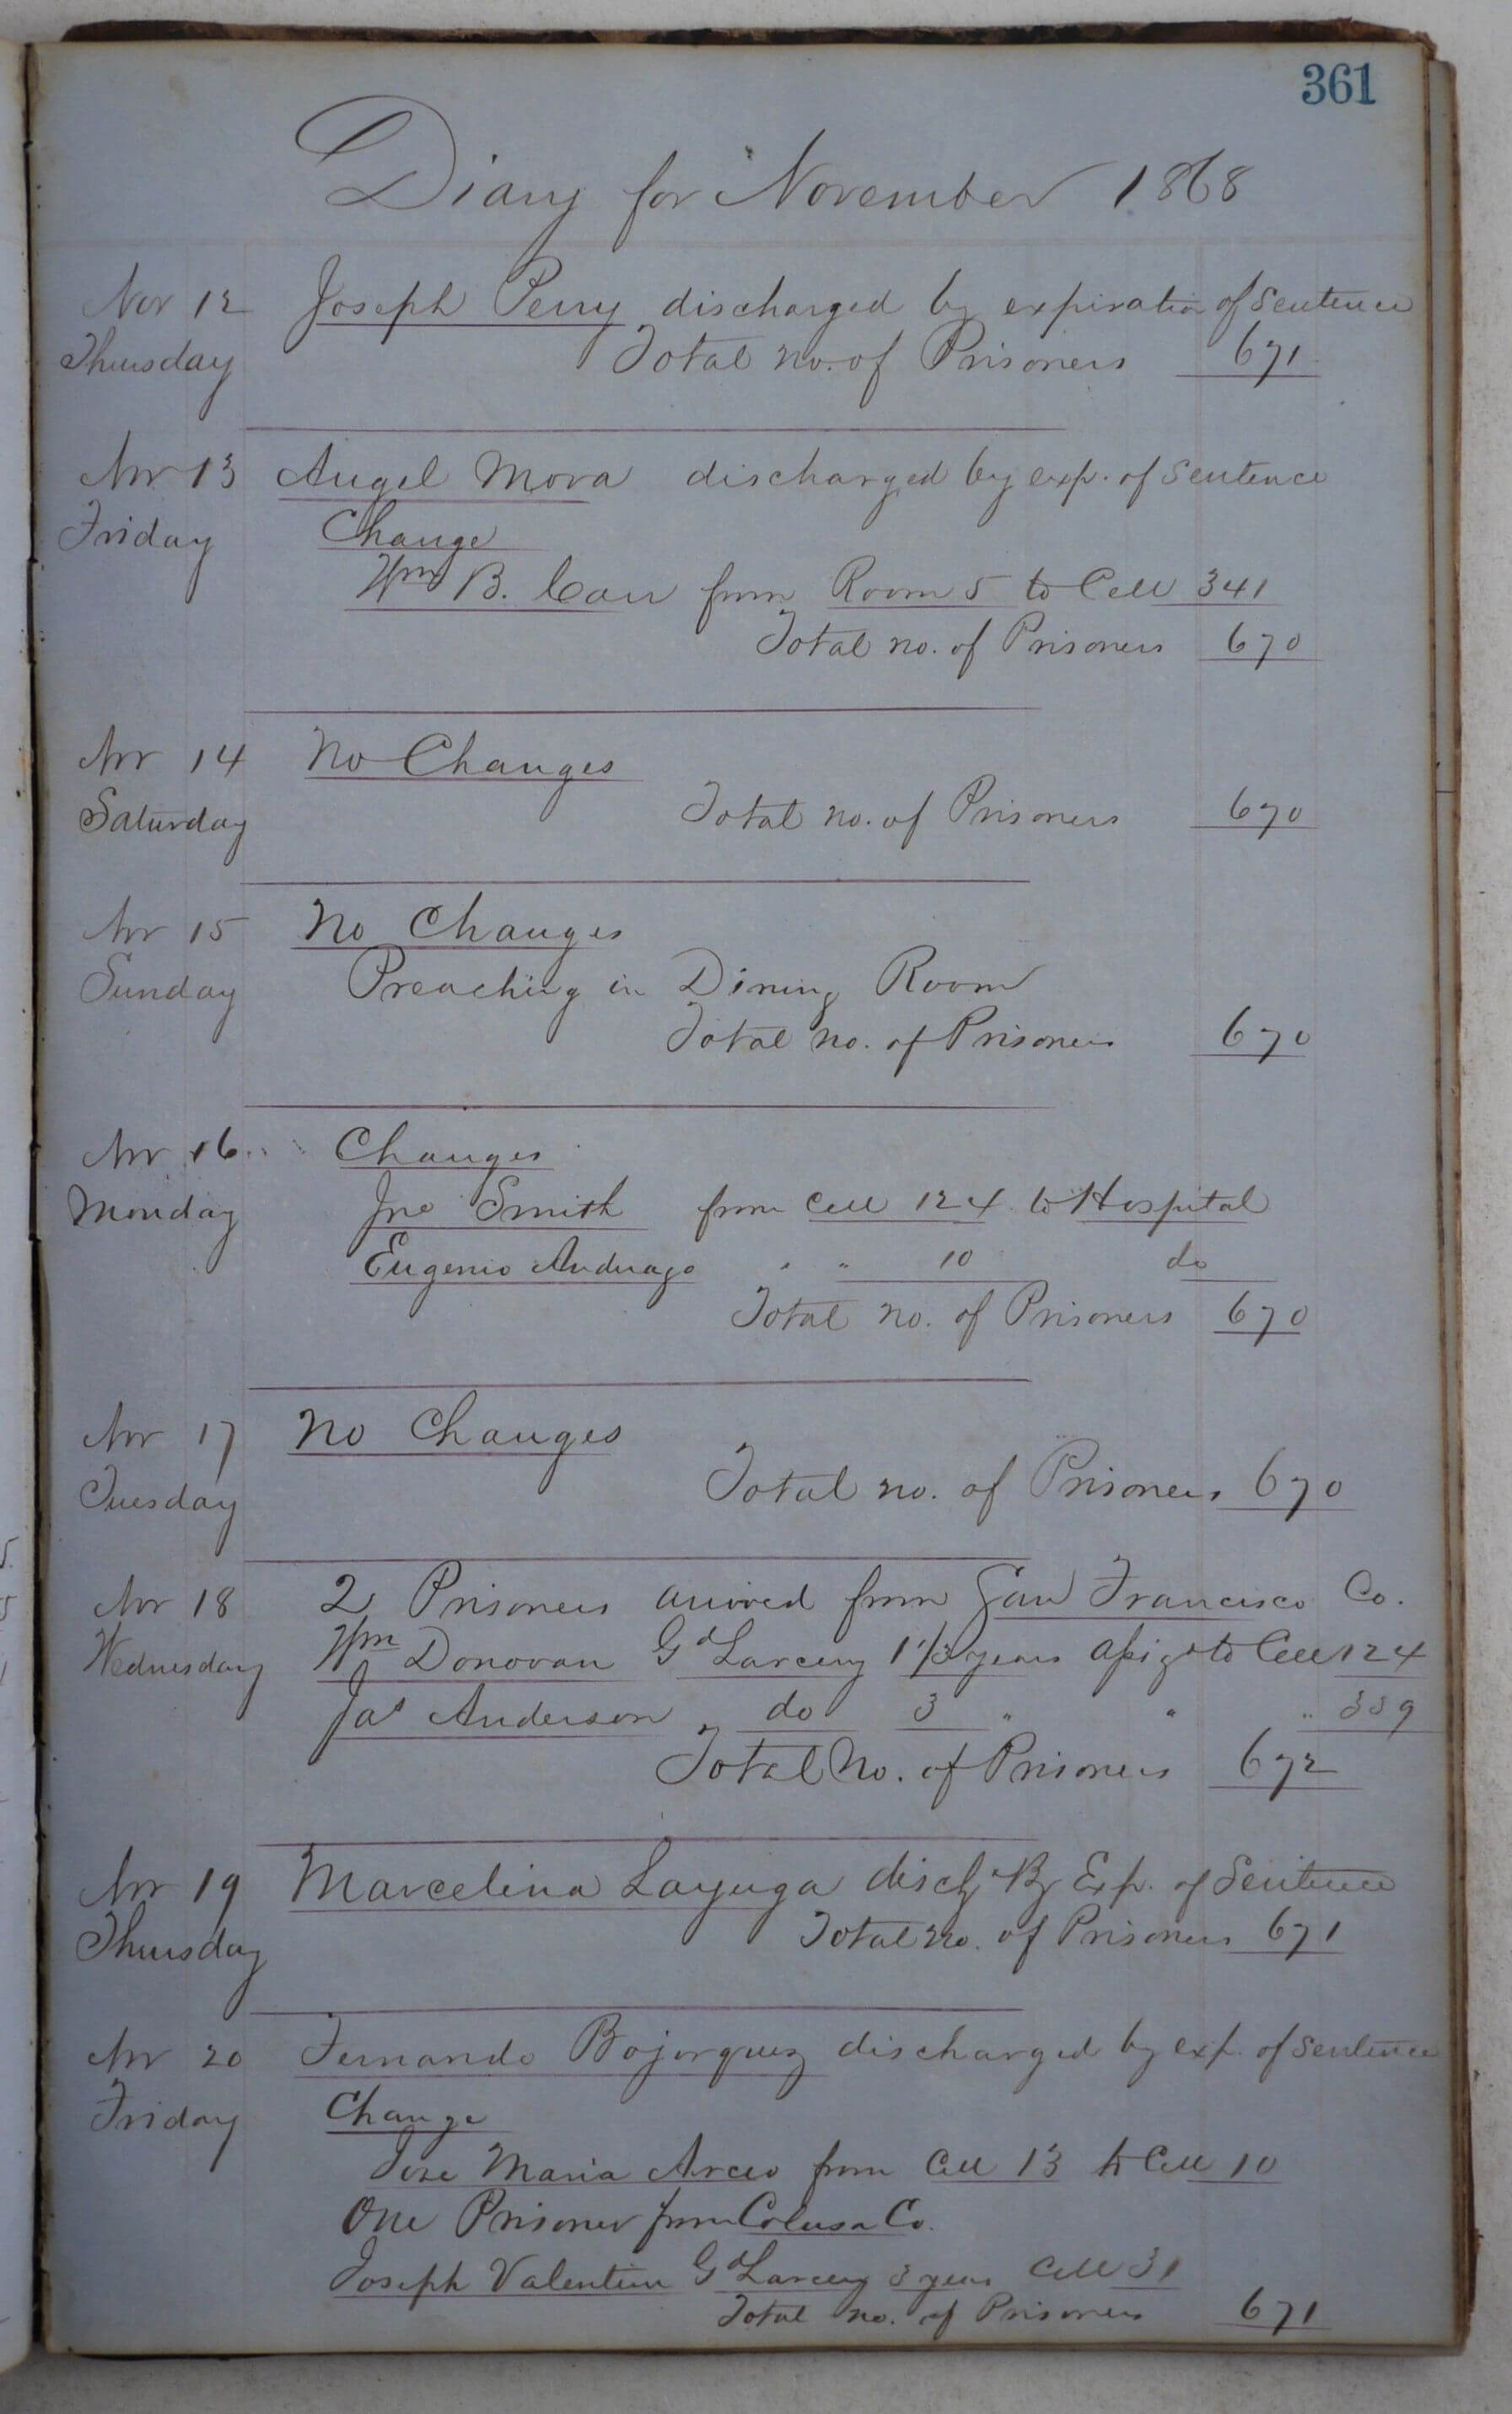 361
Diary for November 1868
Nov 12 Joseph Perry discharged by expiration of Sentence
Thursday Total no. of Prisoners 671
Nov 13 Angel Mora discharged by exp. of Sentence
Friday Change
Wm B. Carr from Room 5 to Cell 341
Total no. of Prisoners 670
Nov 14 No Changes
Saturday Total no. of Prisoners 670
Nov 15 No Changes
Sunday Preaching in Dining Room
Total no. of Prisoners 670
Nov 16 Changes
Monday Jno Smith from Cell 124 to Hospital
Eugenio " " 10 do
Total no. of Prisoners 670
Nov 17 No Changes
Tuesday Total no. of Prisoners 670
Nov 18 2 Prisoners arrived from San Francisco Co.
Wednesday Wm Donovan Gd Larceny 1 1/2 years to Cell 124
Jas Anderson do 3 " " " 339
Total No. of Prisoners 672
Nov 19 Marcelina Layuga By Exp. of Sentence
Thursday Total no. of Prisoners 671
Nov 20 Fernando Bojorquez discharged by exp. of Sentence
Friday Change
Jose Maria Arceo from Cell 13 to Cell 10
One Prisoner from Colusa Co.
Joseph Valentine Gd Larceny 3 years Cell 31
Total no. of Prisoners 671